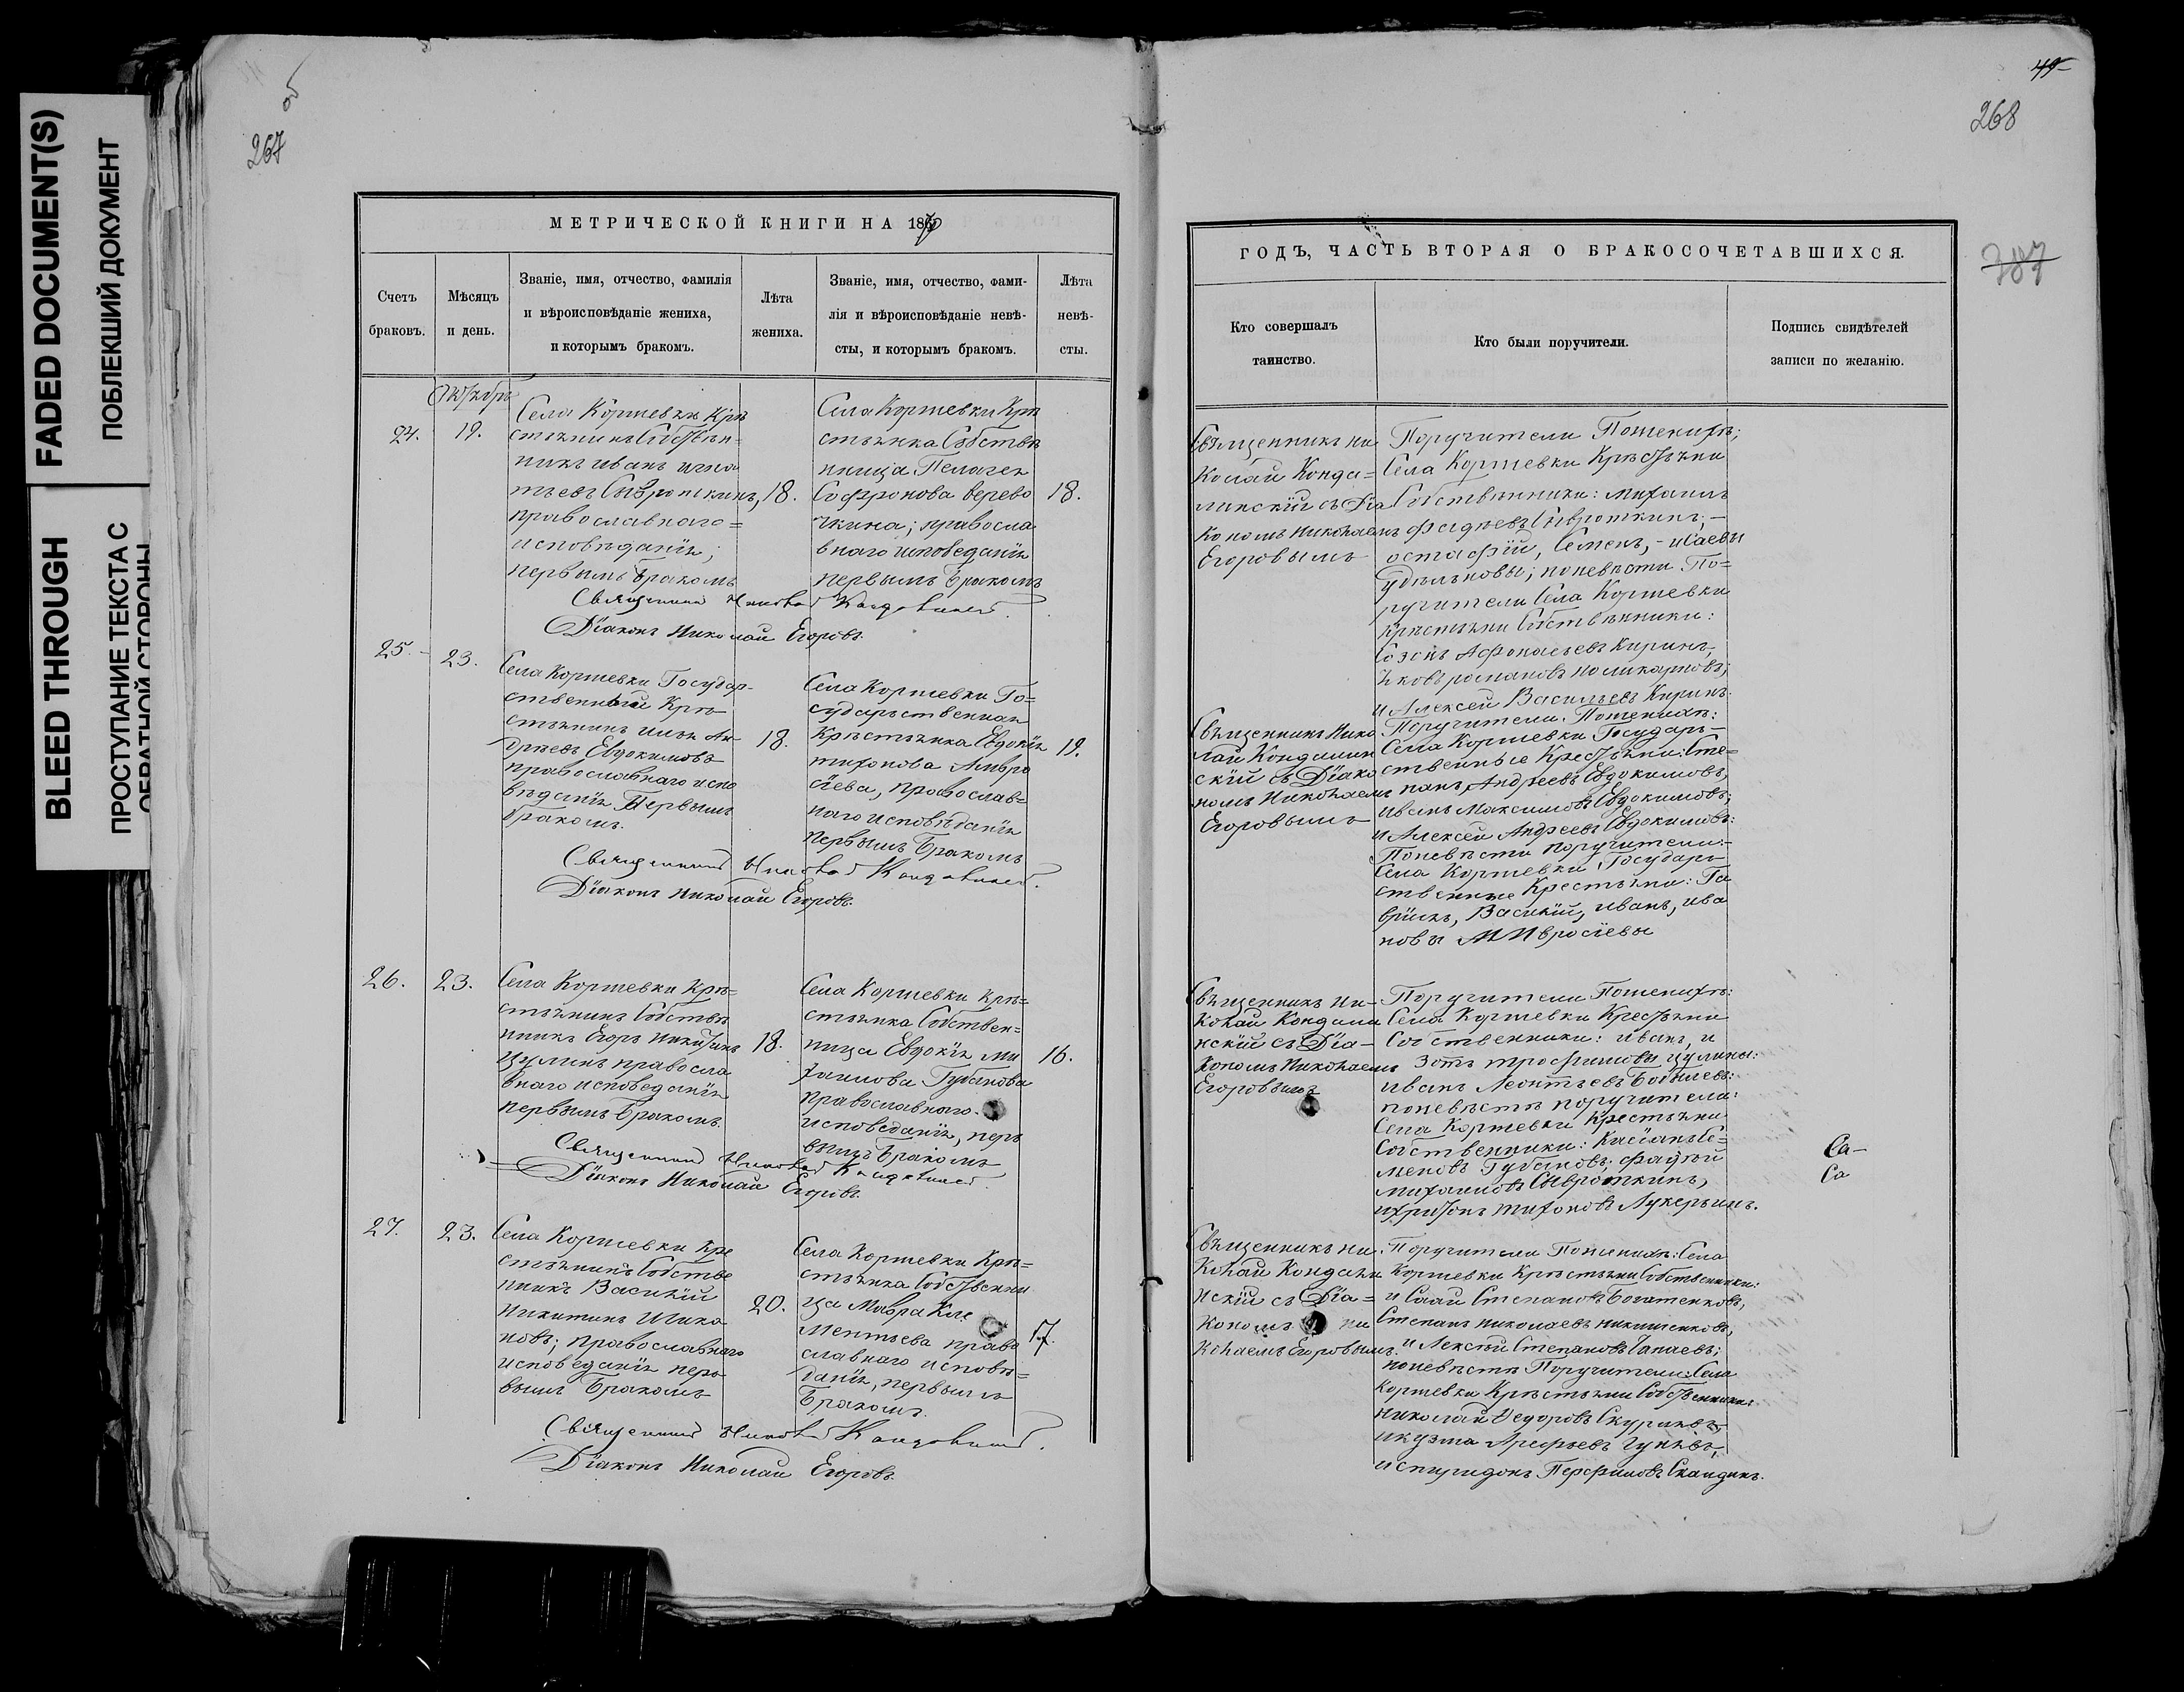 FADED DOCUMENT(S)
ПОБЛЕКШИЙ ДОКУМЕНТ
BLEED THROUGH
ПРОСТУПАНИЕ ТЕКСТА С
ОБРАТНОЙ СТОРОНЫ
об
267
МЕТРИЧЕСКОЙ КНИГИ НА 1870
Счетъ
браковъ.
Мѣсяцъ
и день.
Званіе, имя, отчество, фамилія
и вѣроисповѣданіе жениха,
и которымъ бракомъ.
Лѣта
жениха.
Званіе, имя, отчество, фами-
лія и вѣроисповѣданіе невѣ-
сты, и которымъ бракомъ.
Лѣта
невѣ-
сты.
Октябрь
24.
19.
Села Коржевки Крѣ
стьянинъ Собствѣн=
никъ Иванъ Игна
тьевъ Сывроткинъ,
православнаго=
исповѣданія;
первымъ бракомъ
18.
Села Коржевки Крѣ
стьянка Собствѣ
нница Пелагея
Софронова Верево
чкина; правосла
внаго исповеданія
первымъ бракомъ
18.
Священникъ Николай Кондалинскій
Діаконъ Николай Егоровъ.
25.
23.
Села Коржевки Государ-
ственный Крѣ
стьянинъ Илья Ан-
дреевъ Евдокимовъ
православнаго испо
вѣданія Первымъ
бракомъ.
18.
Села Коржевки Го=
сударьственная
Крѣстьянка Евдокія
Тихонова Амвро
сіева, православ=
наго исповѣданія
первымъ бракомъ
19.
Священникъ Николай Кондалинскій.
Діаконъ Николай Егоровъ.
26.
23.
Села Коржевки Крѣ=
стьянинъ Собствѣ
нникъ Егоръ Никитинъ
Цулинъ правосла
внаго исповеданія
первымъ бракомъ.
18.
Села Коржевки Крѣ=
стьянка Собствен=
ница Евдокія Ми
хаилова Губанова
православнаго
исповеданія, пер
вымъ бракомъ
16.
Священникъ Николай Кондалинскій
Діаконъ Николай Егоровъ.
27.
23.
Села Коржевки Кре
стьянинъ Собстве
нникъ Василій
Никитинъ
новъ; православнаго
исповеданія пер
вымъ бракомъ
20.
Села Коржевки Крѣ=
стьянка Собственни
ца Мавра Кле
ментьева право
славнаго исповѣ=
данія, первымъ
бракомъ.
17.
Священникъ Николай Кондалинскій.
Діаконъ Николай Егоровъ.
49
268
387
ГОДЪ, ЧАСТЬ ВТОРАЯ О БРАКОСОЧЕТАВШИХСЯ.
Кто совершалъ
таинство.
Кто были поручители.
Подпись свидѣтелей
записи по желанію.
Свъященникъ Ни
колай Конда=
линскій съ Діа
кономъ Николаемъ
Егоровымъ
Поручители Пожениху;
Села Коржевки Крѣстьяни
Собствѣнники: Михаилъ
Фадѣевъ Сывроткинъ;-
Остафій, Семенъ,- Исаевы
Удѣльновы; поневѣсти По=
ручители Села Коржевки
Крѣстьяни Собствѣнники:
Созонъ Афонасьевъ Киринъ,
Яковъ Романовъ Поликарповъ,
и Алексей Васильевъ Киринъ.
Свъященникъ Нико
лай Кондалин
скій съ Діако
номъ Николаемъ
Егоровымъ
Поручители Поженихѣ:
Села Коржевки Государь-
ственные Крестьяни: Сте=
панъ Андреевъ Евдокимовъ,
Иванъ Максимовъ Евдокимовъ;
и Алексей Андреевъ Евдокимовъ:
Поневѣсти поручители:-
Села Коржевки Государь-
ственные Крестьяни: Га
вріилъ, Василій, Иванъ, Ива
новы Амвросіевы
Свъященникъ Ни-
колай Кондали
нскій съ Діа-
кономъ Николаемъ
Егоровымъ
Поручители Поженихѣ:
Села Коржевки Крестьяни
Собственники: Иванъ, и
Зотъ Трофимовы Цулины:
Иванъ Леонтьевъ
поневѣстѣ поручители:
Села Коржевки Крестьяни
Собственники: Касіанъ Се=
меновъ Губановъ; Фадѣй
Михаиловъ Сывроткинъ,
Тихоновъ Лукерьинъ.
Са-
Са
Свъященникъ Ни.
колай Кондали
нскій съ Діа=
кономъ Ни
колаемъ Егоровымъ.
Поручители Поженихѣ: Села
Коржевки Крѣстьяни Собственники:
Исаай Степановъ Богатенковъ,
Степанъ Николаевъ Никишенковъ,
и Лексѣй Степановъ Чапаевъ;
поневѣстѣ Поручители: Села
Коржевки Крѣстьяни Собственники:
Николай Федоровъ
и Кузма Арефьевъ
и Спиридонъ Перфиловъ Скандинъ.